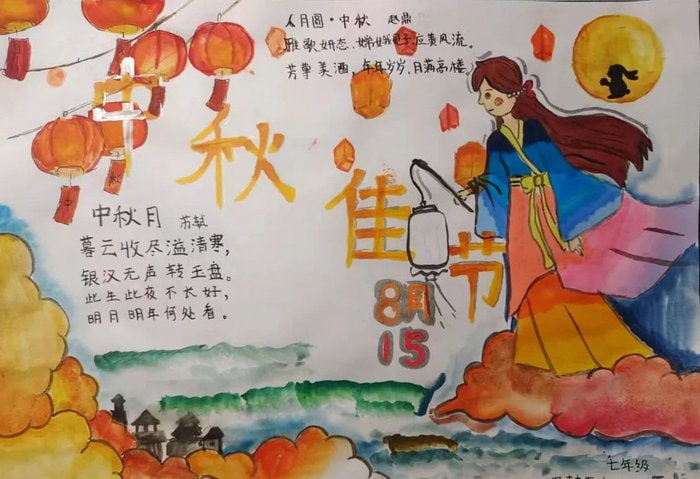 人月圆·中秋 赵鼎
雅歌妍态,嫦娥见了,应羡风流。
芳尊美酒,年年岁岁,月满高楼。
中秋佳节
8月
15
中秋月 苏轼
暮云收尽溢清寒,
银汉无声转玉盘。
此生此夜不长好,
明月明年何处看。
中
秋
七年级